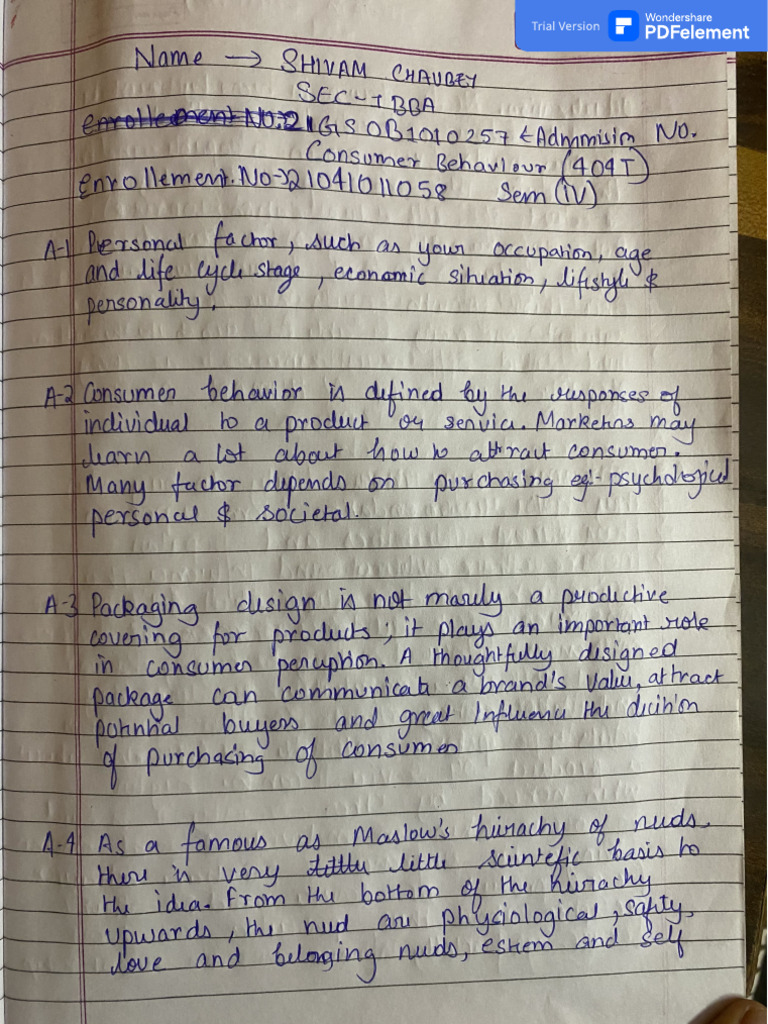 Trial Version
Wondershare
PDFelement
Name → SHIVAM CHAUBEY
SEC-I BBA
Enrollement No:21GSOB1010257 ← Admmision No.
Consumer Behaviour (404T)
Enrollement.No→21041011058 Sem (IV)
A-1 Personal factor, such as your occupation, age
and life cycle stage, economic situation, lifestyle &
personality.
A-2 Consumer behavior is defined by the responses of
individual to a product or service. Marketers may
learn a lot about how to attract consumer.
Many factor depends on purchasing eg:- psychological
personal & societal.
A-3 Packaging design is not marely a productive
covering for products; it plays an important role
in consumer perception. A thoughtfully designed
package can communicate a brand's value, attract
potential buyers and great Influence the dicision
of purchasing of consumer
A-4 As a famous as Maslow's hierachy of needs.
there is very little little scientefic basis to
the idea. From the bottom of the hierachy
upwards, the need are physiological, safety,
love and belonging needs, esteem and self